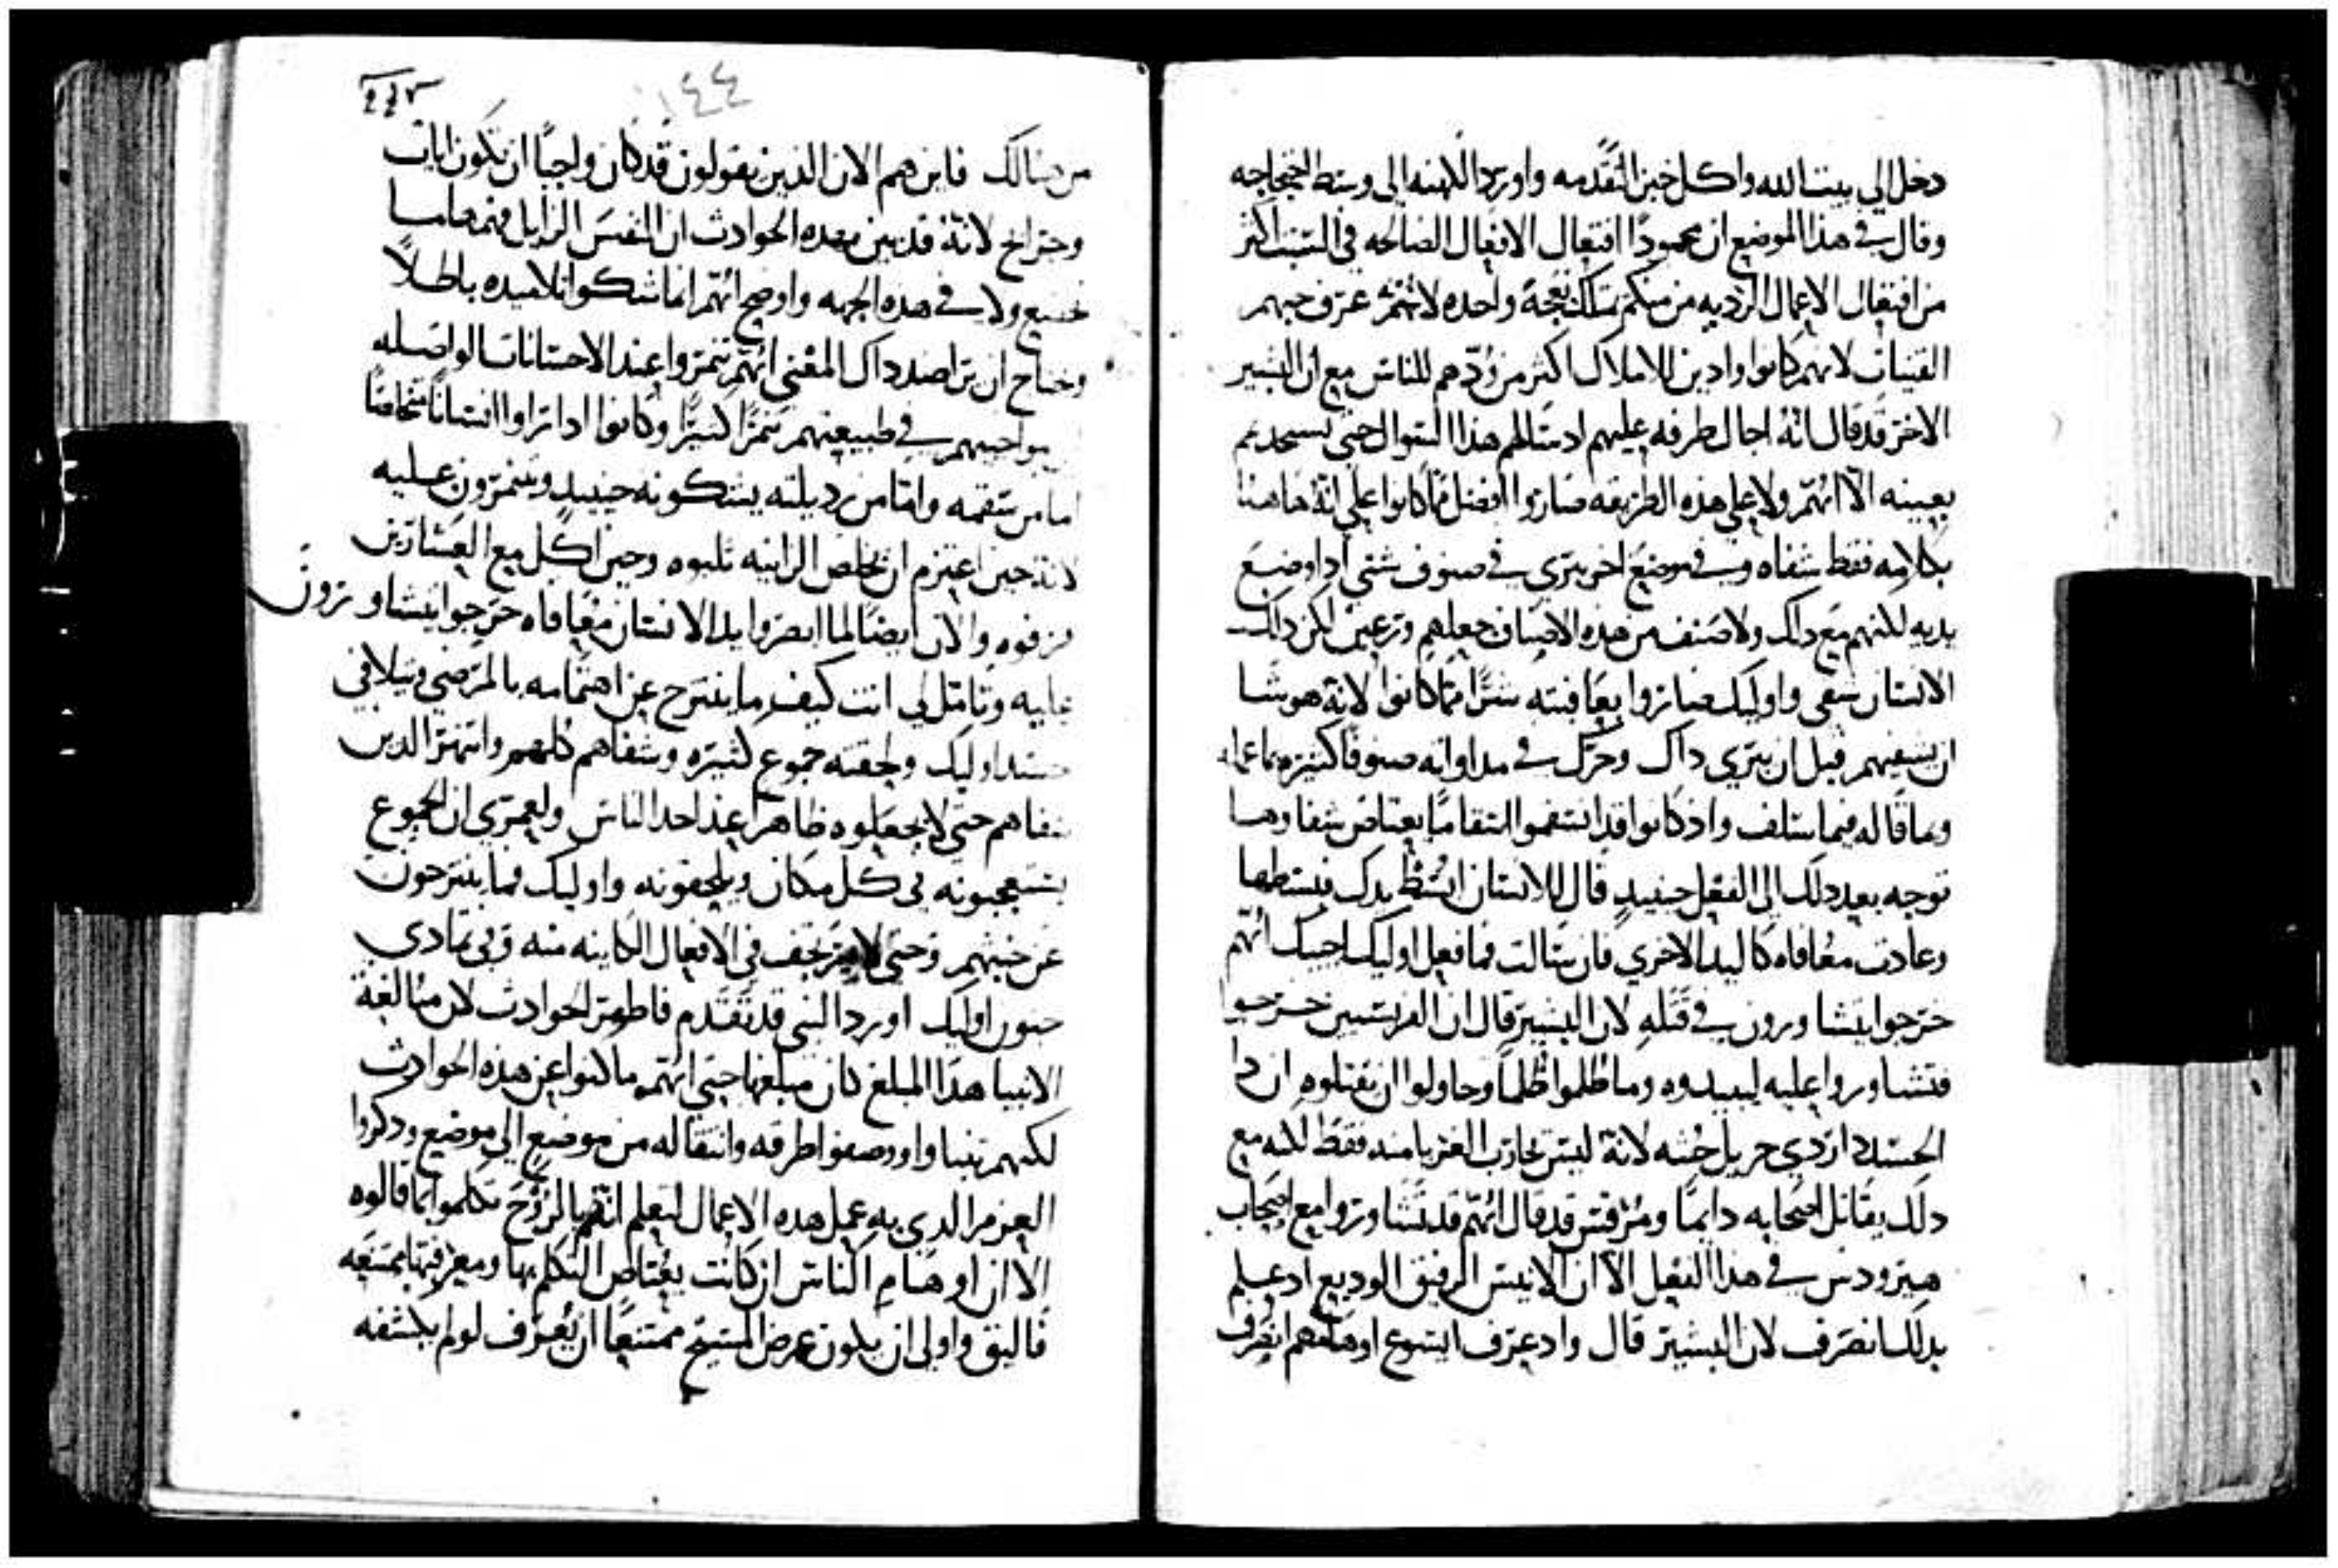 دخل الي بيت الله واكل خبز التقدمه واورد الكهنه الي وسط احتجاجه
وقال في هذا الموضع ان محمودًا افتعال الافعال الصالحه في السبت اكثر
من افتعال الاعمال الرديه من منكم يملك نعجة واحده لانهم عرف حبهم
القنيات لانهم كانوا وادين للاملاك اكثر من ودهم للناس مع ان البشير
الاخر قد قال انه اجال طرفه عليهم اد سالهم هذا السوال حتي يستجديهم
بعينه الا انهم ولا علي هذه الطريقه صاروا افضل مما كانوا علي انه هاهنا
بكلامه فقط شفاه وفي موضع اخر يري في صنوف شتي اذا وضع
يديه لكنهم مع داك ولا صنف من هذه الاصناف جعلهم ودعين لكن داك
الانسان شفي واوليك صاروا بعافيته شرًا مما كانوا لانه هو شا
ان يشفيهم قبل ان يبري داك وحرك في مداواته صنوفا كثيره بما عمله
وبما قاله فيما سلف واذ كانوا قد انسقموا انسقامًا يعتاص شفاوها
توجه بعد دلك الي الفعل حينيدٍ قال للانسان ابسط يدك فبسطها
وعادت معافاه كاليد الاخري فان سالت فما فعل اوليك اجبتك انهم
خرجوا يتشاورون في قتله لان البشير قال ان الفريسيين خرجوا
فتشاوروا عليه ليبيدوه وما ظلموا ظلمًا وحاولوا ان يقتلوه ان دا
الحسد دا ردي جزيل خبثه لانه ليس يحارب الغربا منه فقط لكنه مع
دلك يقاتل اصحابه دايمًا ومرقس قد قال انهم قد تشاوروا مع اصحاب
هيرودس في هذا الفعل الا ان الانيس الرفيق الوديع اد علم
بدلك انصرف لان البشير قال واد عرف ايسوع اوهامهم انصرف
٢٤٣
١٤٤
من هنالك فاين هم الان الذين يقولون قد كان واجبًا ان تكون ايات
وجرايح لانه قد بين بهده الحوادث ان النفس الزايل فهمها ما
تخضع ولا في هذه الجهه واوضح انهم انما شكوا تلاميده باطلاً
وجناح ان نراصد داك المعني انهم تنمروا عند الاحسانات الواصله
بواجبهم في طبيعتهم تنمرًا كثيرًا وكانوا ادا راوا انسانًا متخلصًا
اما من سقمه واما من رديلته يشكونه حينيدٍ ويتنمرون عليه
لانه حين اعتزم ان يخلص الزانيه ثلبوه وحين اكل مع العشارين
قرفوه والان ايضًا لما ابصروا يد الانسان معافاه خرجوا يتشاورون
عليه وتامل لي انت كيف ما ينتزح عن اهتمامه بالمرضي ويتلافي
حسد اوليك ولحقته جموع كثيره وشفاهم كلهم وانتهر الدين
شفاهم حتي لا يجعلوه ظاهرا عند احد الناس ولعمري ان الجموع
يستعجبونه في كل مكان ويلحقونه واوليك فما ينتزحون
عن خبثهم وحتي لا يرتجف في الافعال الكاينه منه وفي تمادي
جنون اوليك اورد النبي قد تقدم فاظهر الحوادث لان مبالغة
الانبيا هذا المبلغ كان مبلغها حتي انهم ما كنوا عن هذه الحوادث
لكنهم تنباوا ووصفوا طرقه وانتقاله من موضع الي موضع ودكروا
العزم الدي به عمل هده الاعمال لتعلم انهم بالروح تكلموا بما قالوه
الا ان اوهام الناس ان كانت يعتاص التكلم بها ومعرفتها ممتنعه
فاليق واولي ان يكون غرض المسيح ممتنعًا ان يُعرف لو لم يكشفه